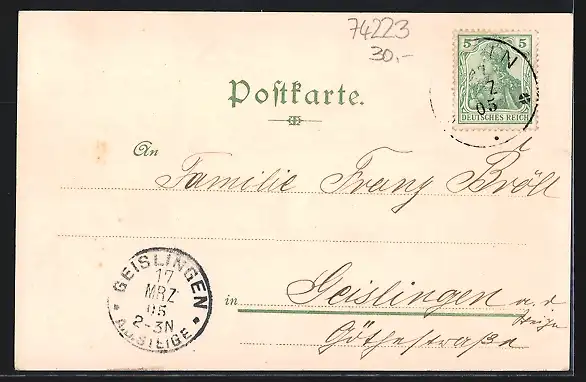 74223
30.-
5 5
DEUTSCHES REICH
IN
17
Z
05
Postkarte.
An
Familie Franz Bröll
GEISLINGEN
17
MRZ
05
2-3N
A.D. STEIGE
in Geislingen a. d
Steige
Göthestraße